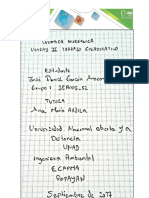 QUIMICA INORGANICA
UNIDAD II TRABAJO COLABORATIVO
Estudiante
José Daniel García
Grupo:
TUTORA
Ana María Ardila
Universidad Nacional abierta y a
Distancia
UNAD
Ingeniería Ambiental
ECAPMA
POPAYÁN
Septiembre de 2017